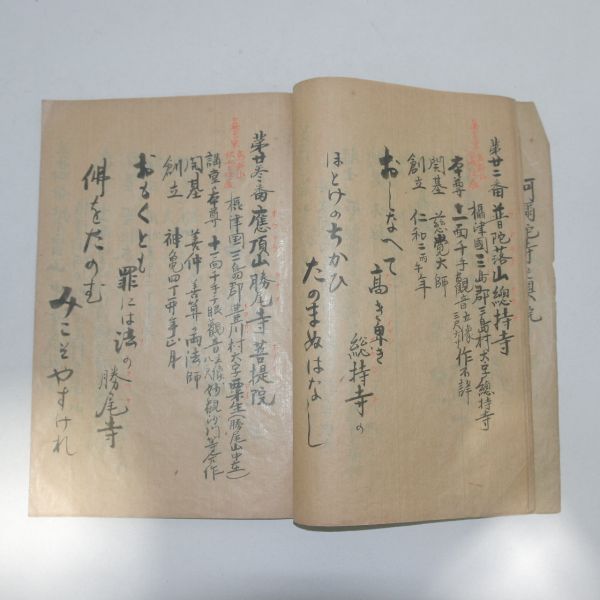 阿彌陀寺之奥院
第廿二番 普陀落山總持寺
攝津國三島郡三島村大字總持寺
本尊 十一面千手觀音立像三尺六寸 作不詳
開基 慈覺大師
創立 仁和二丙午年
おしなへて 高き卑き
総持寺の
ほとけのちかひ たのまぬはなし
第廿参番 應頂山勝尾寺菩提院
攝津国三島郡豊川村大字粟生(勝尾山中在)
講堂本尊 十一面千手千眼觀音立像八尺
開基 善仲 善算 両法師
創立 神亀四丁卯年正月
おもくとも 罪には法の
勝尾寺
佛をたのむ みこそやすけれ